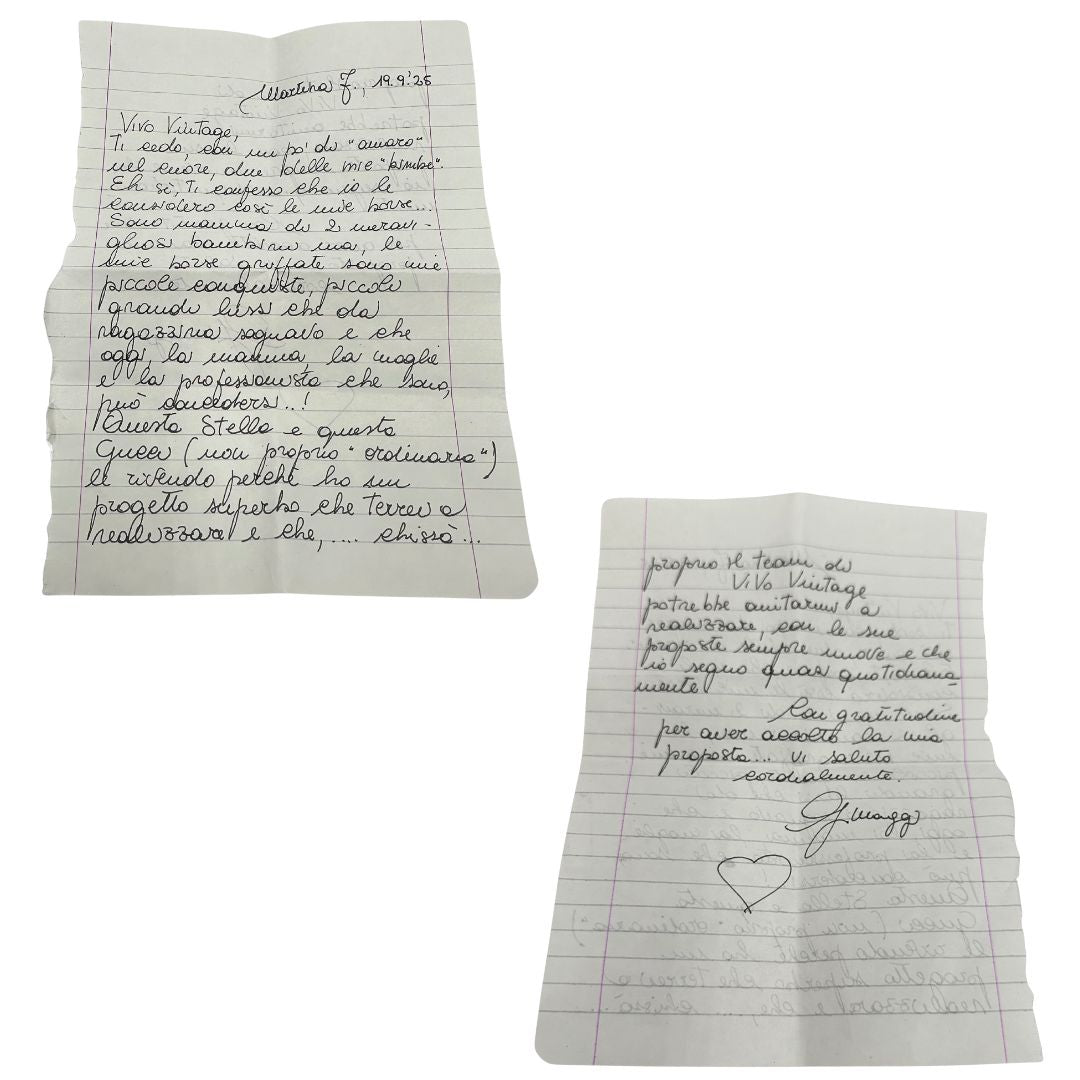 Martina F., 19.9.'25
Vivo Vintage,
Ti cedo, con un po' di "amaro"
nel cuore, due delle mie "bimbe".
Eh sì, Ti confesso che io le
considero così le mie borse...
Sono mamma di 2 meravi-
gliosi bambini ma, le
mie borse griffate sono mie
piccole conquiste, piccoli
grandi lussi che da
ragazzina sognavo e che
oggi, la mamma, la moglie
e la professionista che sono,
può concedersi..!
Questa Stella e questa
Gucci (non proprio "ordinaria")
le rivendo perché ho un
progetto superbo che terrei a
realizzare e che, .... chissà...
proprio il team di
ViVo Vintage
potrebbe aiutarmi a
realizzare, con le sue
proposte sempre nuove e che
io seguo quasi quotidiana-
mente.
Con gratitudine
per aver accolto la mia
proposta... vi saluto
cordialmente.